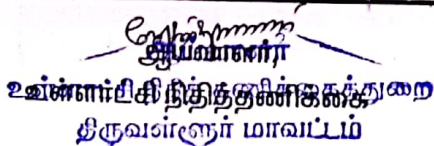 ஆய்வாளர்
உள்ளாட்சி நிதித்தணிக்கைத்துறை
திருவள்ளூர் மாவட்டம்